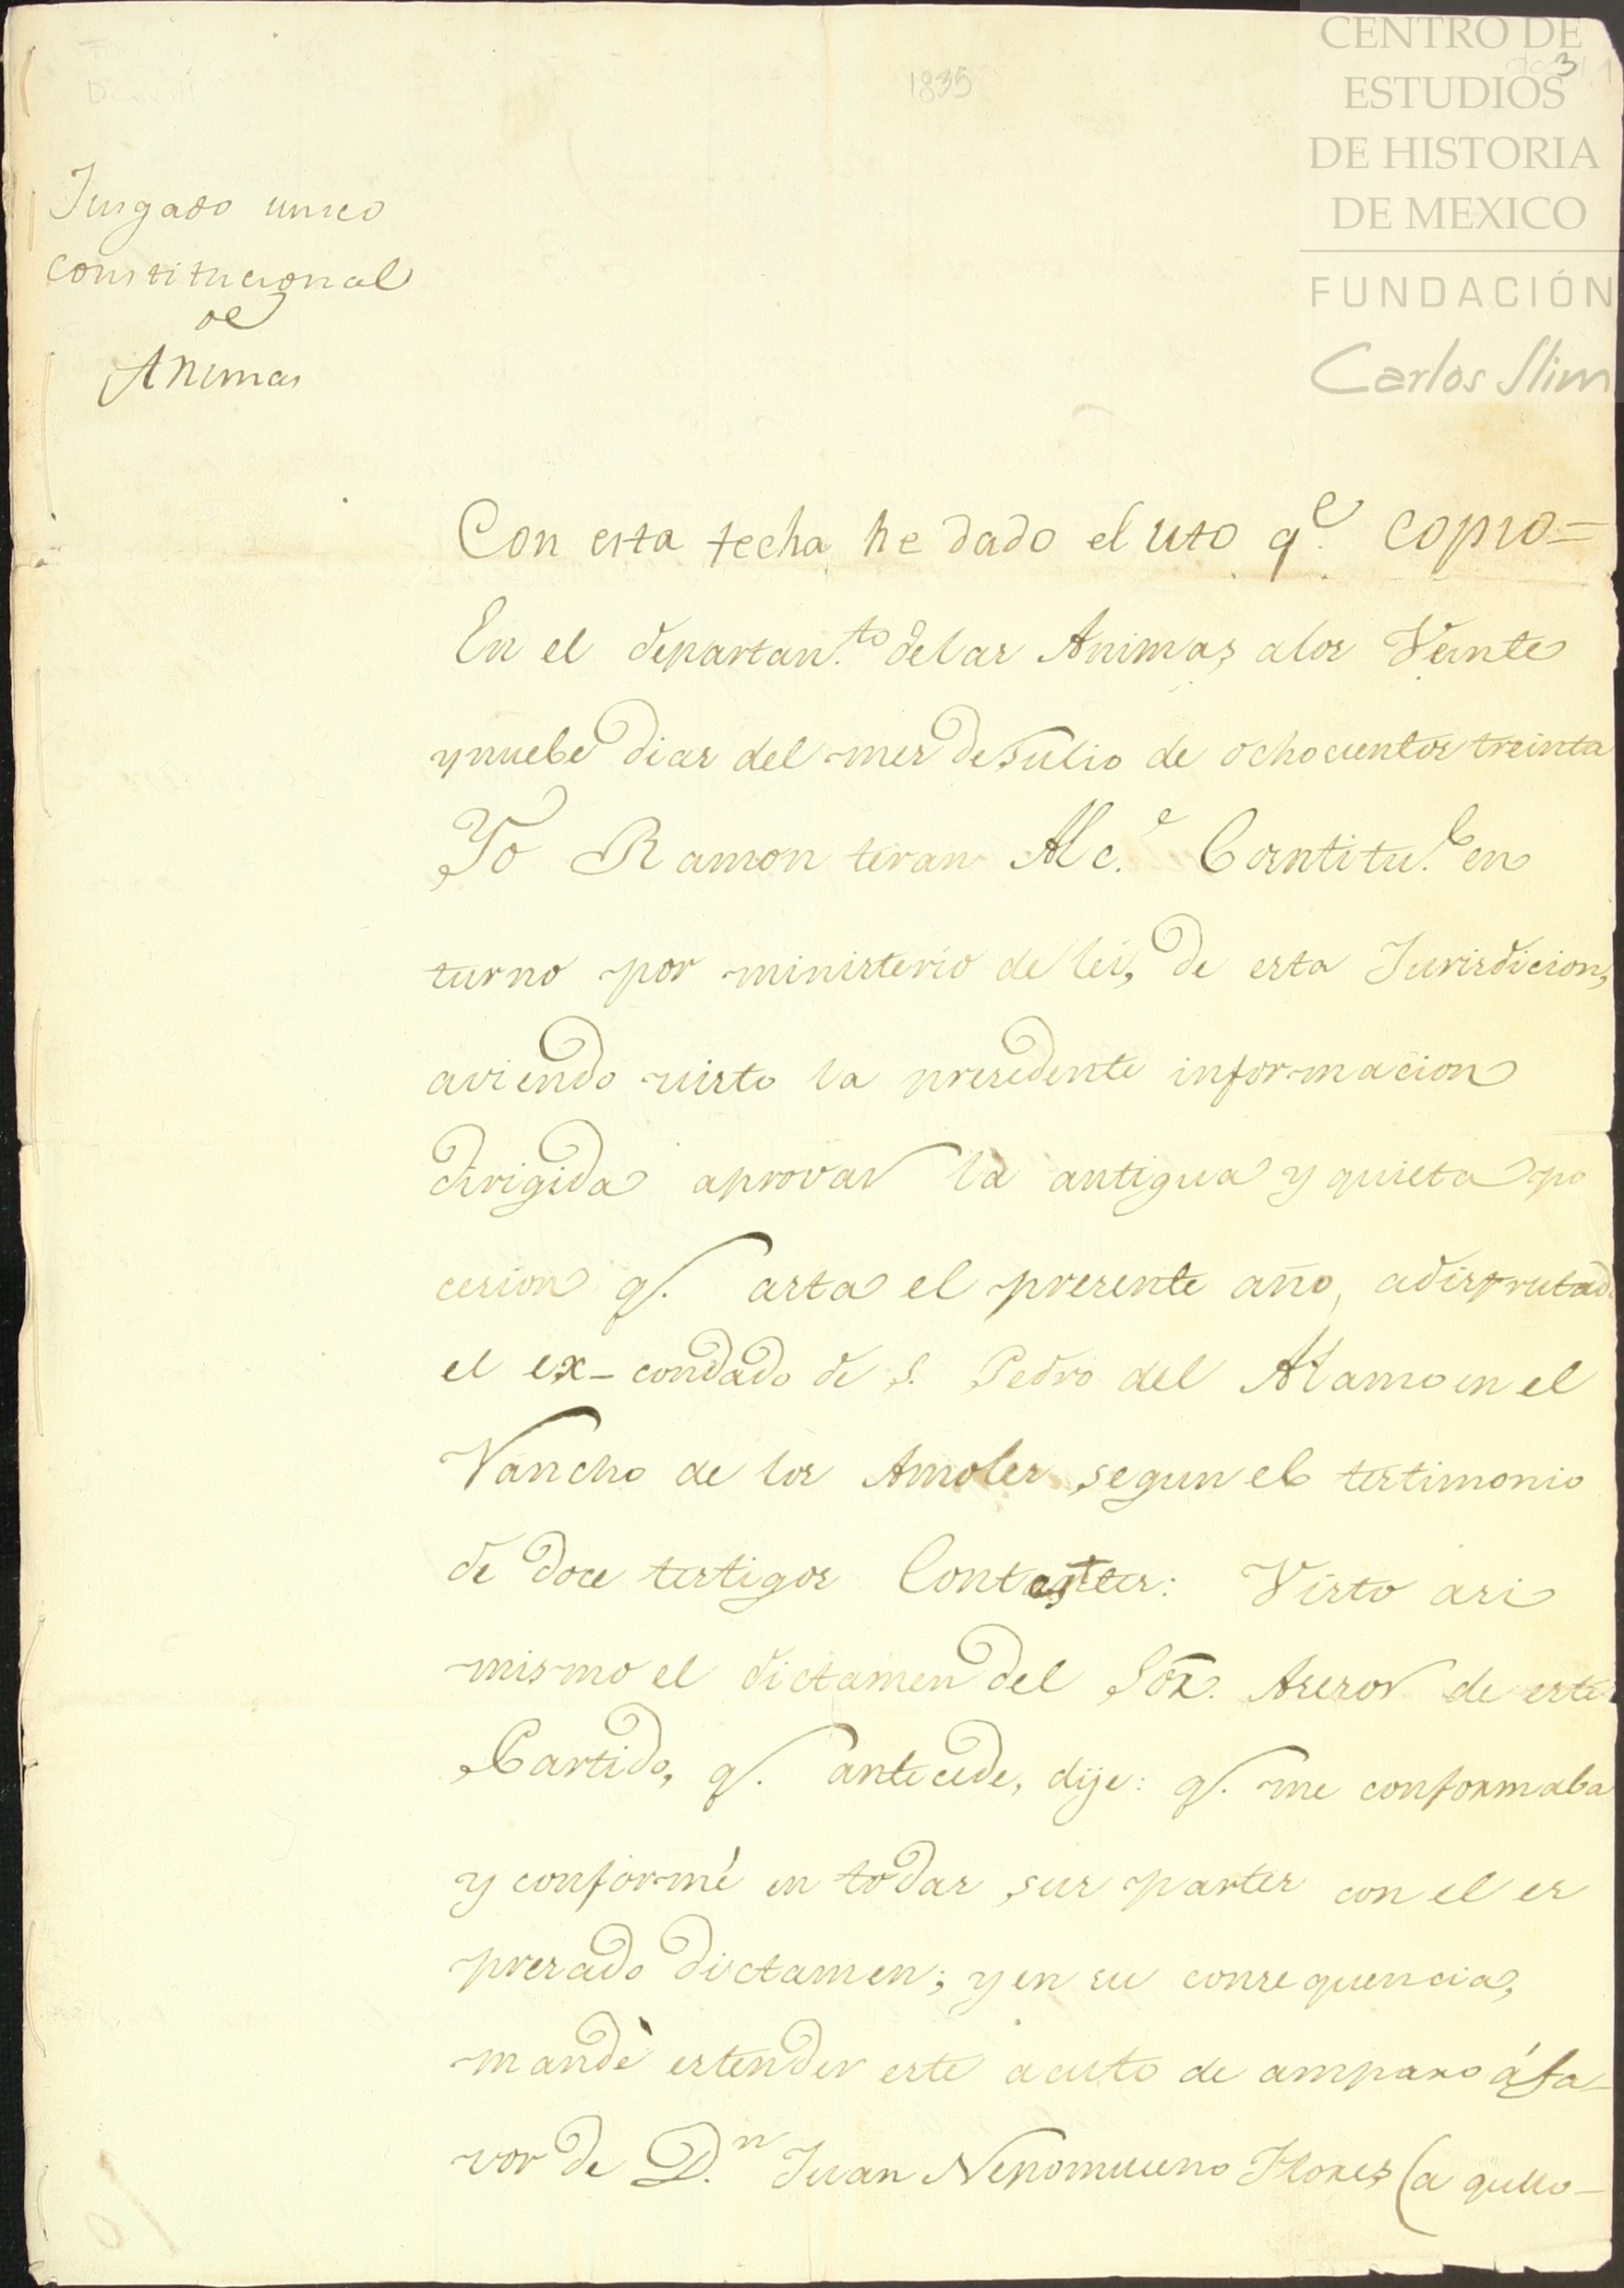 CENTRO DE
ESTUDIOS
DE HISTORIA
DE MEXICO
FUNDACIÓN
Carlos Slim
3
1835
Jusgado unico
constitucional
de
Animas
Con esta fecha he dado el uto q.e copio=
En el departan.to delas Animas, alos Veinte
ynuebe dias del mes deJulio de ochocientos treinta
Yo Ramon teran Alc.e Constitu.l en
turno por ministerio de lei, de esta Jurisdicion,
aviendo visto la presedente informacion
dirigida aprovar la antigua y quieta po
cesion q.e asta el presente año, adisfrutado
el ex-condado de S. Pedro del Alamo en el
Rancho de los Amoles, segun el testimonio
de doce testigos Contestes: Visto asi
mismo el dictamen del Sor. Asesor de este
Partido, q.e antecede, dije: q.e me conformaba
y conformé en todas sus partes con el es
presado dictamen; yen su consequencia,
mandè estender este acuto de amparo áfa-
vor de D.n Juan Nepomuceno Flores (a quello-